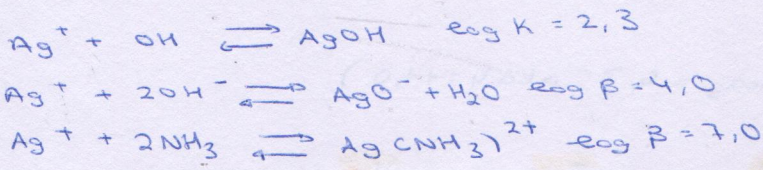 Ag⁺ + OH ⇌ AgOH log K = 2,3
Ag⁺ + 2OH⁻ ⇌ AgO⁻ + H₂O log β = 4,0
Ag⁺ + 2NH₃ ⇌ Ag(NH₃)²⁺ log β = 7,0